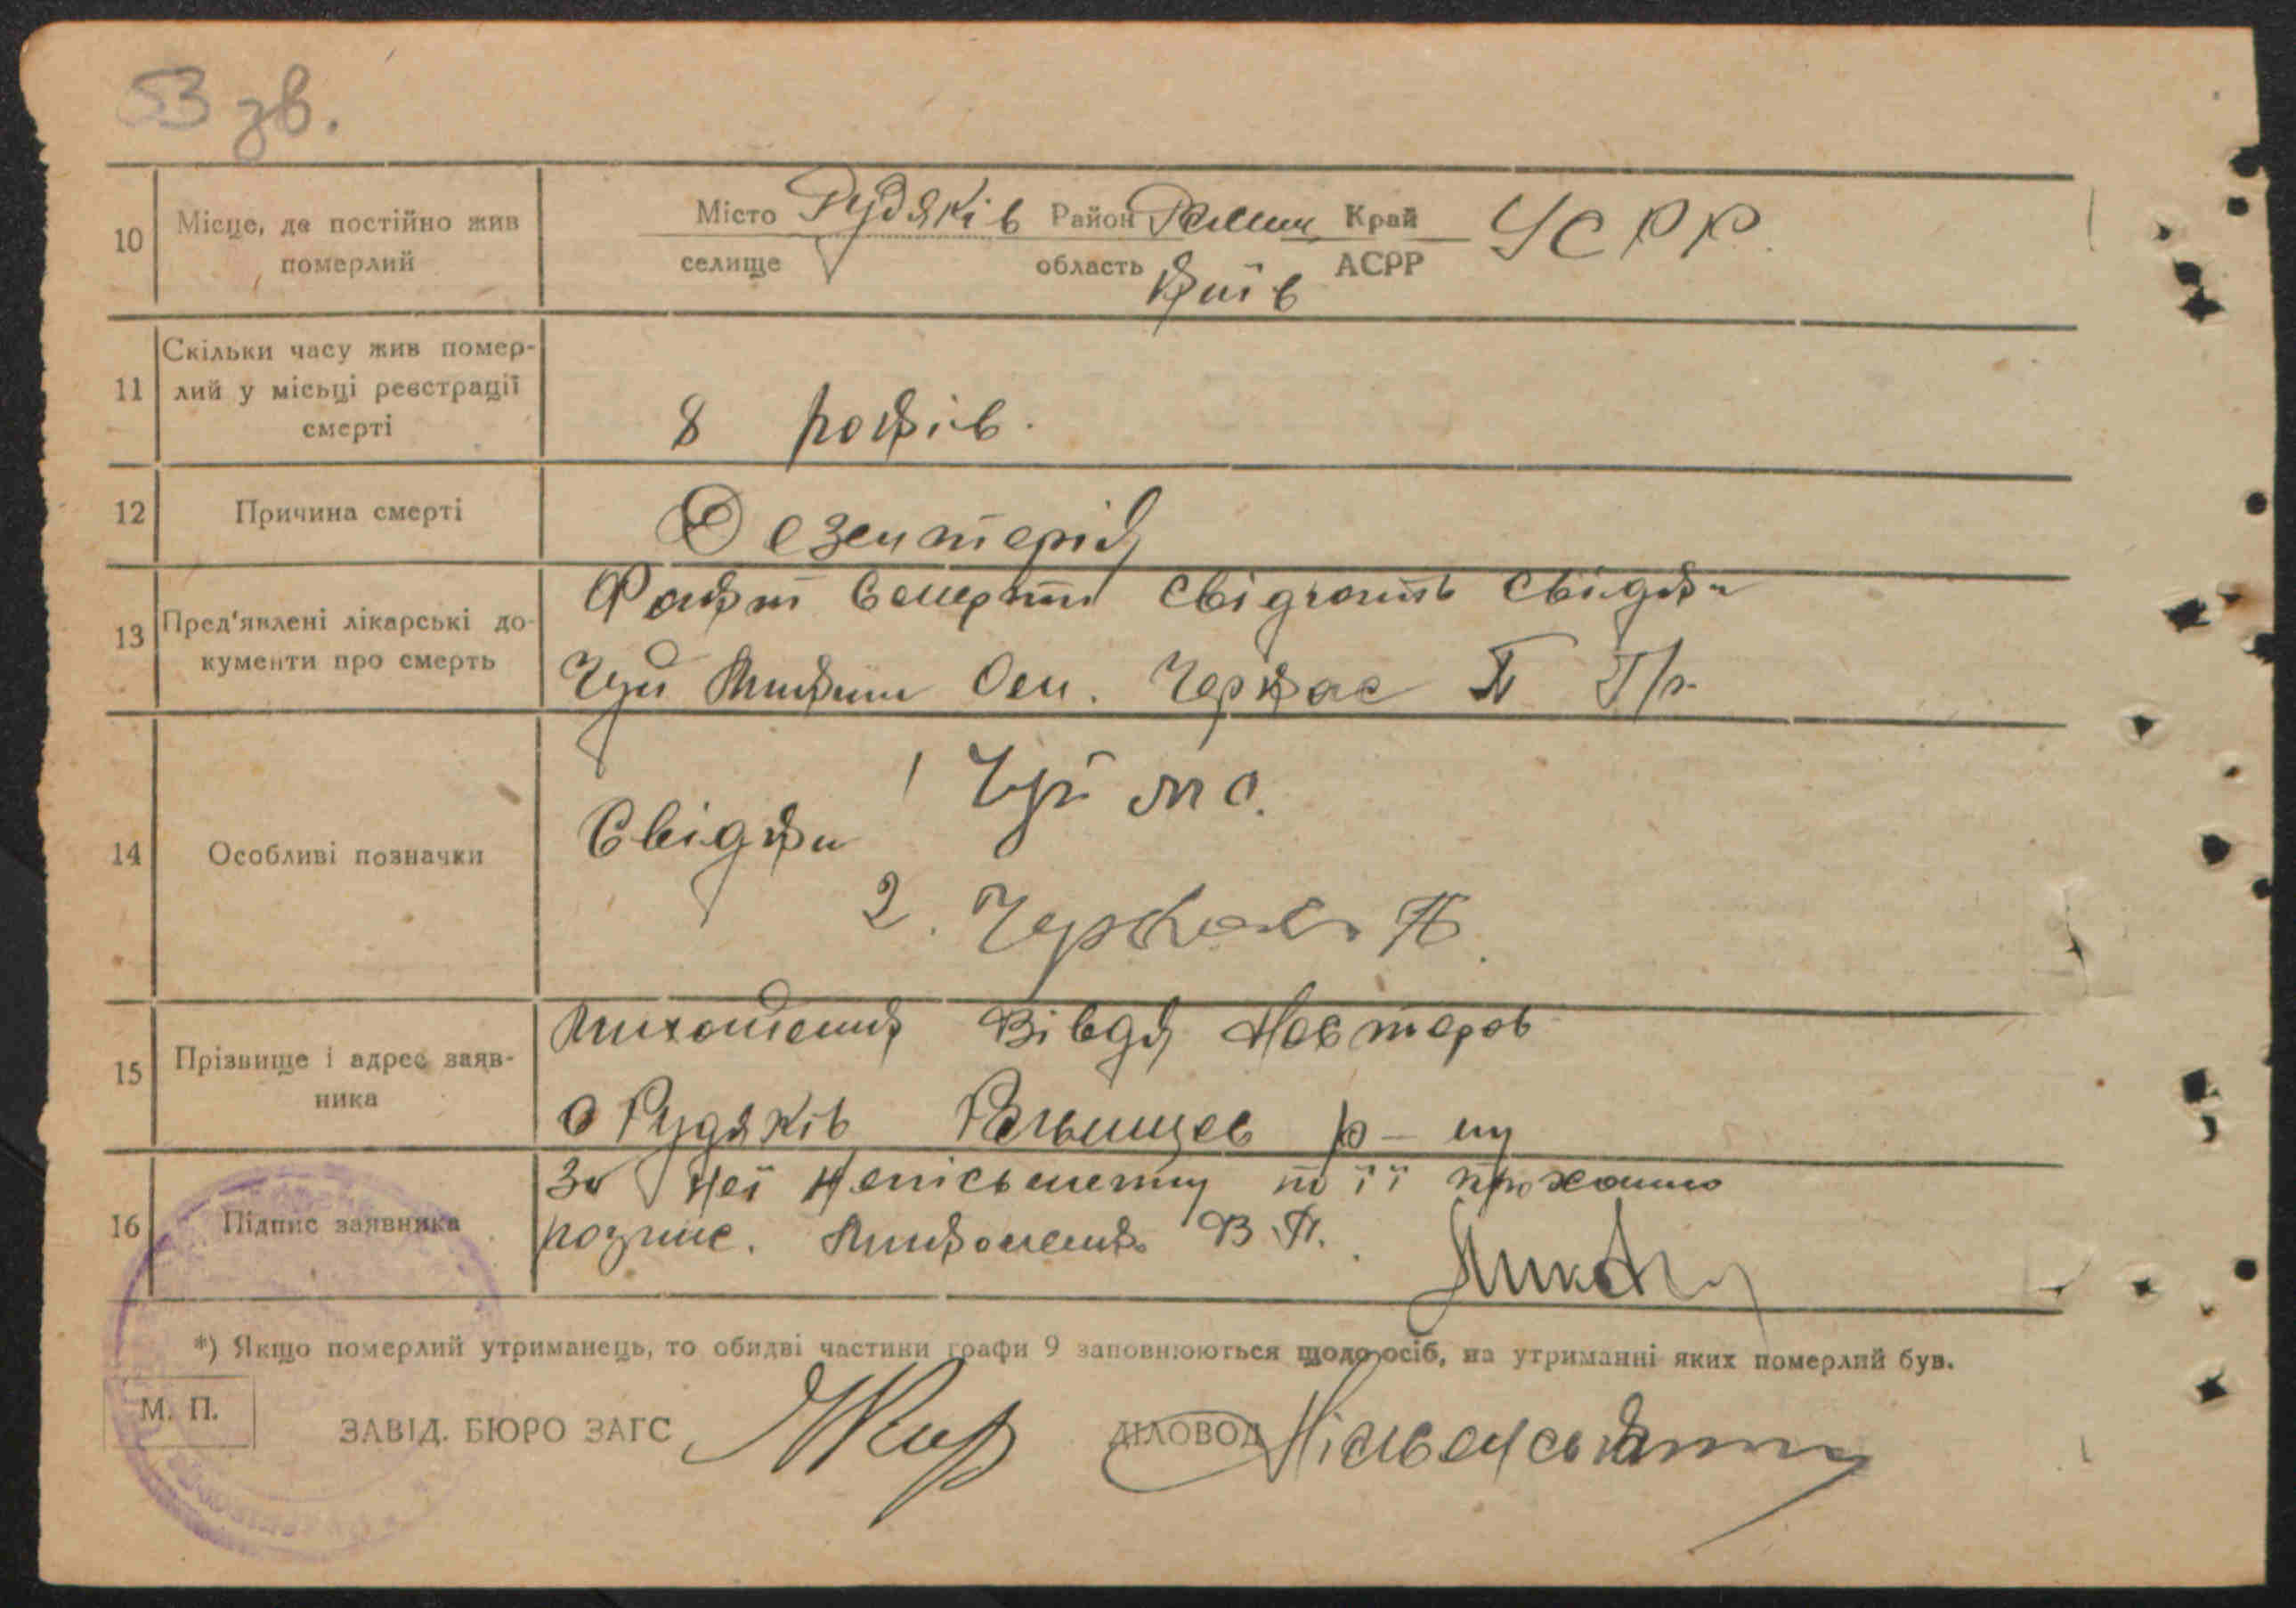 53 зв.
10 Місце, де постійно жив померлий
Місто Рудяків Район Край УСРР
селище область Київ АСРР
11 Скільки часу жив помер-
лий у місьці реєстрації
смерті
8 років.
12 Причина смерті
Дезентерія
13 Пред'явлені лікарські до-
кументи про смерть
Факт смерти свідчать свідки
Чуй Микит Ом. Черкас П Гр.
14 Особливі позначки
Свідки
1 Чуй М О.
2. Черкас П.
15 Прізвище і адрес заяв-
ника
Вівдя Нестеров
с Рудяків р-ну
16 Підпис заявника
За неї неписьменну по її проханню
розпис. В. П.
*) Якщо померлий утриманець, то обидві частини графи 9 заповнюються щодо осіб, на утриманні яких померлий був.
М. П.
ЗАВІД. БЮРО ЗАГС ДІЛОВОД